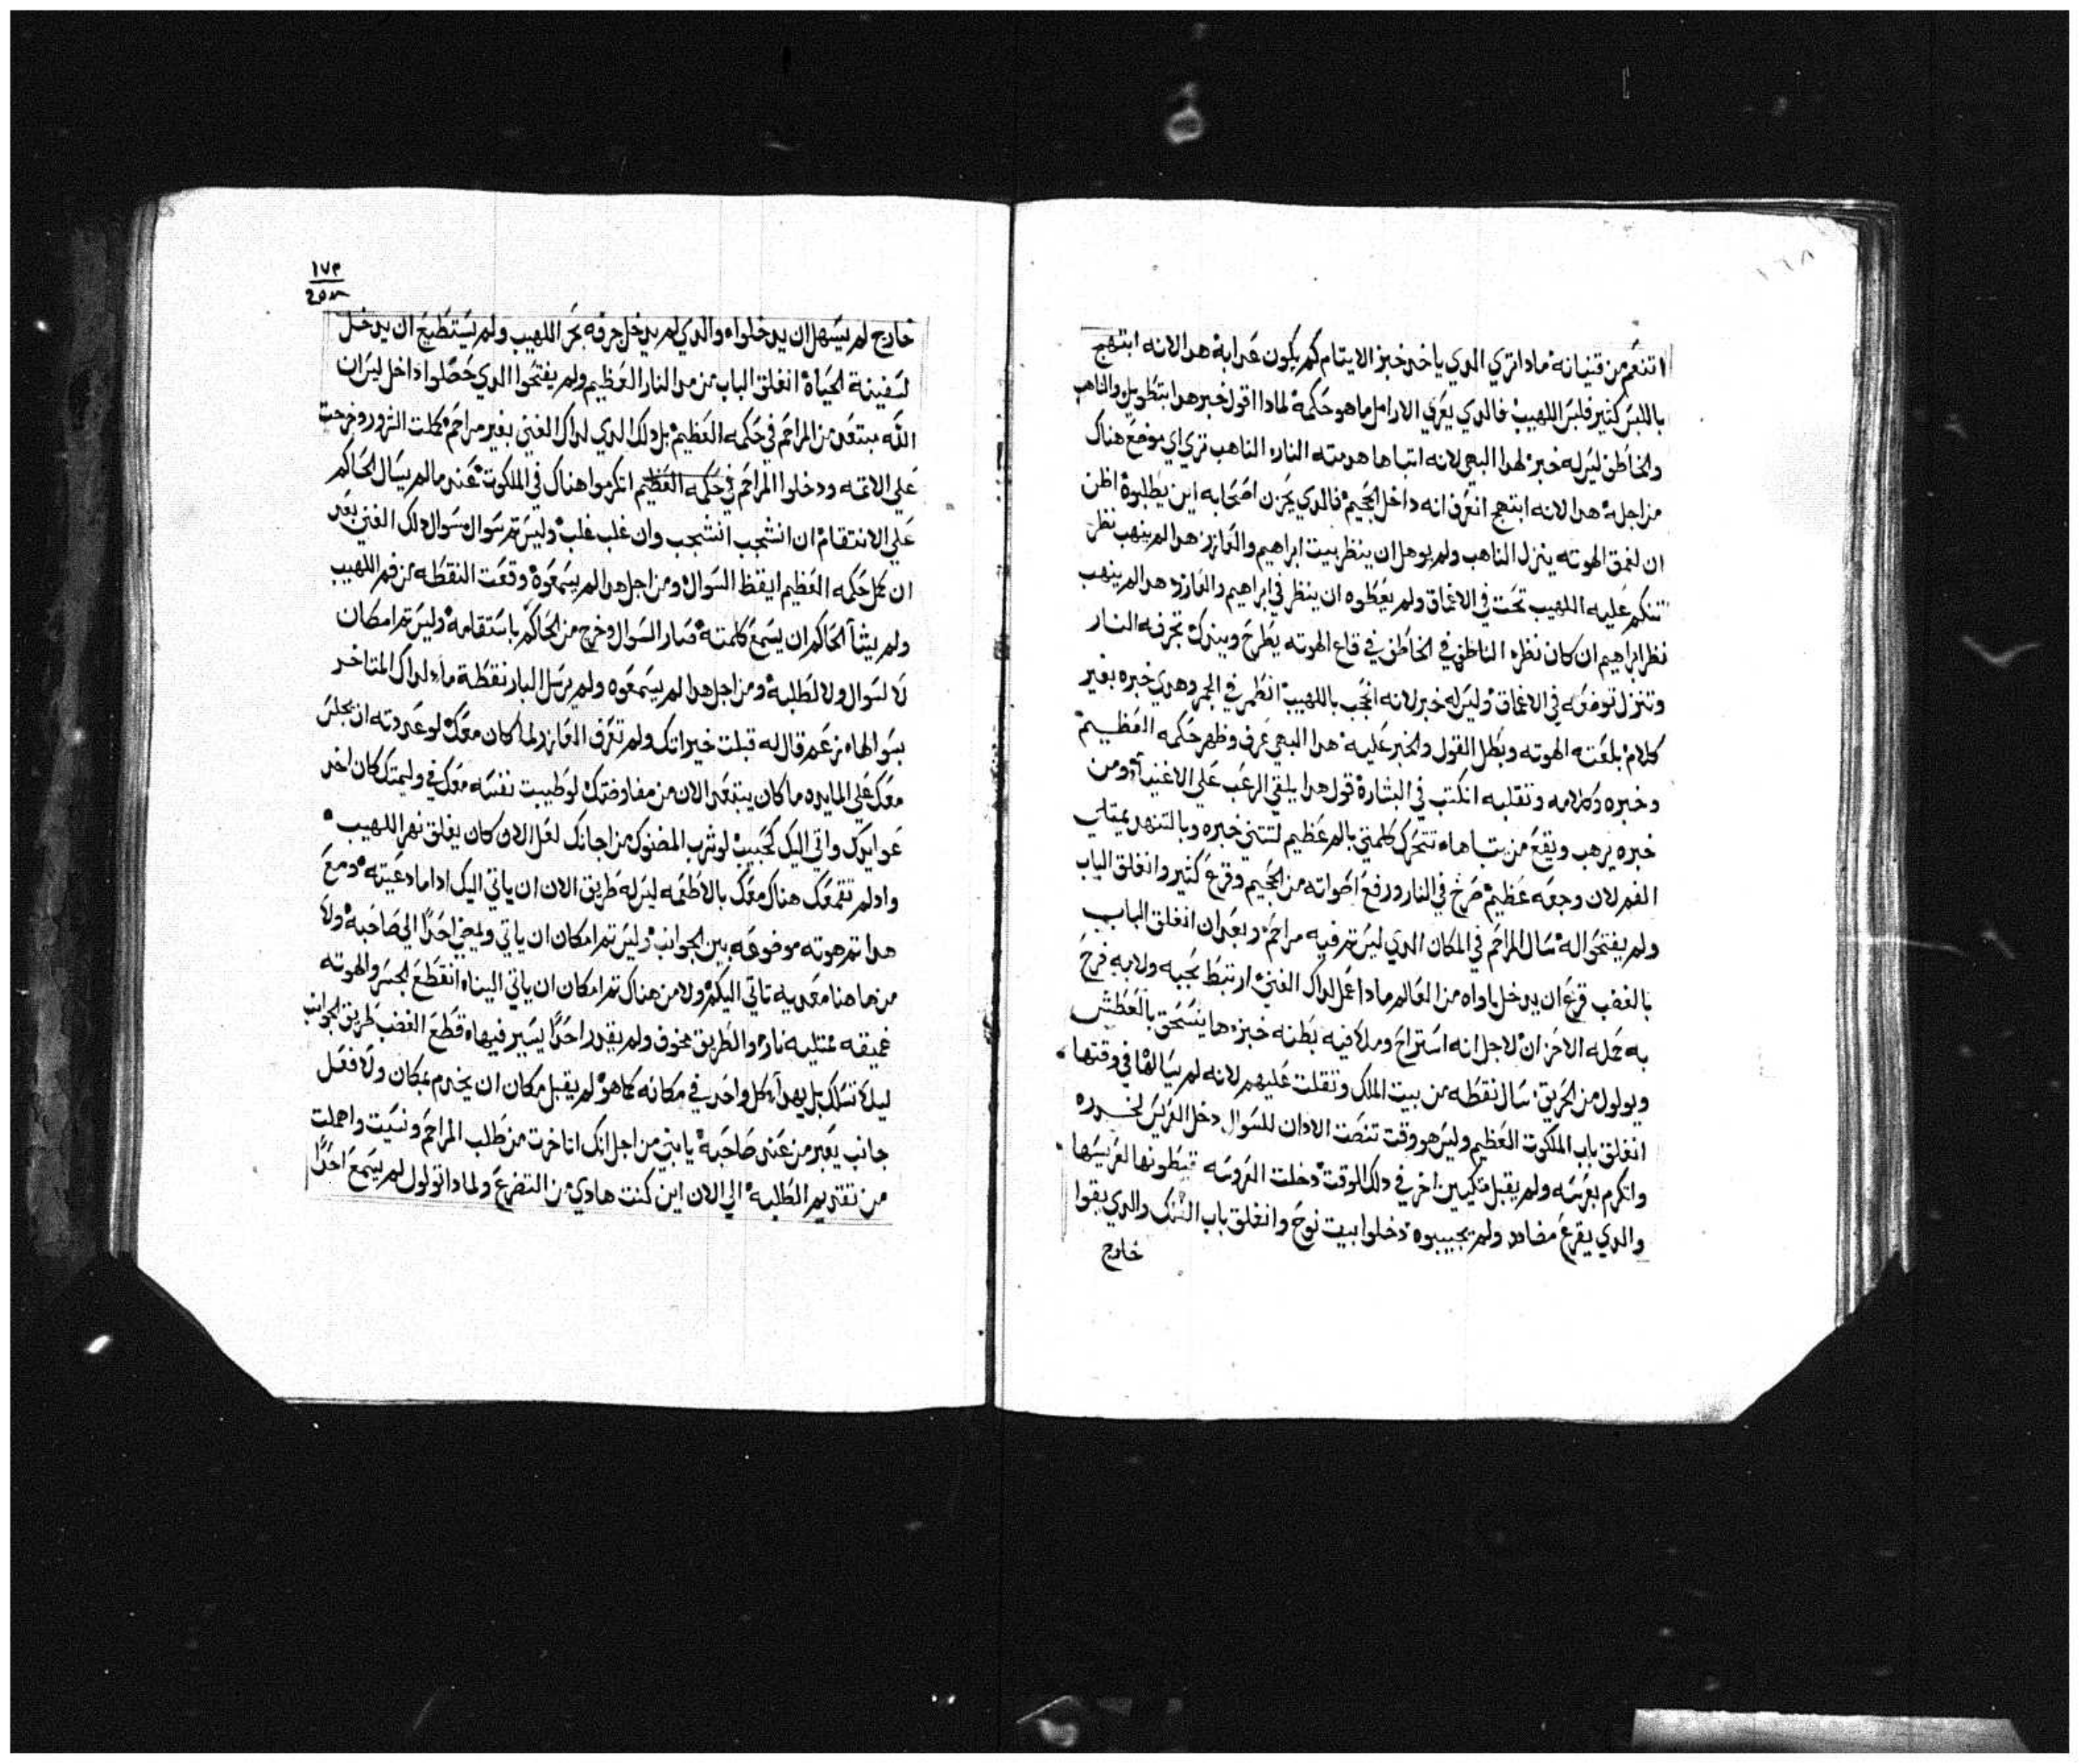 ١٦٨
اتنعم من قنيانه ماداتري الدي ياخد خبز الايتام كم يكون عدابه هدا لانه ابتهج
باللبس كثير فلبس اللهيب فالدي يعري الارامل ما هو حكمه لمادا اقول خبر هدا بتطويل والناهب
والخاطف ليس له خبر لهدا النار الناهب تري اي موضع هناك
من اجله هدا لانه ابتهج انعرف انه داخل الجحيم فالدي يحزن اصحابه اين يطلبوه اظن
ان لعمق الهوته ينزل الناهب ولم يوهل ان ينظر بيت ابراهيم والعازر هدا لم ينهب نظر
عليه اللهيب تحت في الاعماق ولم يعطوه ان ينظر في ابراهيم والعازر هدا لم ينهب
نظر ابراهيم ان كان نظره الخاطف في قاع الهوته يطرح ويترك تجرفه النار
وتنزل توضعه في الاعماق وليس له خبر لانه انحجب باللهيب انطمر في الجمر وهدي خبره بغير
كلام بلعته الهوته وبطل القول والخبر عليه هدا عرف وظهر حكمه العظيم
وخبره وكلامه وتقلبه انكتب في البشارة قول هدا يلقي الرعب علي الاغنيآ ومن
خبره يرهب ويقع من تتحرك كلمتي بالم عظيم لتتني خبره وبالتنهد يمتلي
الفم لان وجعه عظيم صرخ في النار ورفع اصواته من الجحيم وقرع كثير وانغلق الباب
ولم يفتحوا له سال المراحم في المكان الدي ليس تم فيه مراحم وبعد ان انغلق الباب
بالغضب قرع ان يدخل ياواه من العالم مادا عمل لداك الغني ارتبط بحبه ولا به فرح
به حمله الاحزان لاجل انه استراح وملا فيه بطنه خبز ها يستحق بالعطش
ويولول من الحريق سال نقطه من بيت الملك وتقلت عليهم لانه لم يسالها في وقتها
انغلق باب الملكوت العظيم وليس هو وقت تنصت الادان للسوال دخل العريس لخدره
واتكرم بعرسه ولم يقبل اخر في دلك الوقت دخلت العروسه عريسها
والدي يقرع مضادد ولم يجيبوه دخلوا بيت نوح وانغلق باب الفلك والدي بقوا
خارج
١٧٣
خارج لم يسهل ان يدخلوا والدي لم يدخل جرفه بحر اللهيب ولم يستطيع ان يدخل
لسفينة الحياة انغلق الباب من النار العظيم ولم يفتحوا الدي حصلوا داخل ليس ان
الله مبتعد من المراحم في حكمه العظيم بل دلك الدي لداك الغني بغير مراحم كملت الشرور وخرجت
علي الاتمه ودخلوا المراحم في حكمه العظيم اتكرموا هناك في الملكوت عند ما لم يسال الحاكم
علي الانتقام ان انشجب انشجب وان غلب غلب وليس تم سوال سوال دلك الغني بعد
ان كمل حكمه العظيم ايقظ السوال ومن اجل هدا لم يسمعوه وقعت النقطه من فم اللهيب
ولم يشآ الحاكم ان يسمع كلمته صار السوال وخرج من الحاكم باستقامه وليس تم امكان
لا لسوال ولا لطلبه ومن اجل هدا لم يسمعوه ولم يرسل البار نقطة مآ لداك المتاخر
بسوالها قال له قبلت خيراتك ولم تعرف العازر لما كان معك لو عددته ان يجلس
معك علي المايده ما كان يبتعد الان من مفاوضتك لو طيبت نفسه معك في وليمتك كان اخد
عوايدك واتي اليك كحبيب لو شرب من اجانك لعل الان كان يغلق نهر اللهيب
واد لم تنعم معك هناك معك بالاطعمه ليس له طريق الان ان ياتي اليك ادا ما دعيته ومع
هدا تم هوته موضوعه بين الجوانب وليس تم امكان ان ياتي ويمضي احدًا الي صاحبه ولا
من هاهنا معديه تاتي اليكم ولا من هناك تم امكان ان ياتي الينا انقطع الجسر والهوته
عميقه ممتليه نار والطريق مخوف ولم يقدر احدًا يسير فيها قطع الغضب طريق الجوانب
ليلا تسلك بل يهدآ كل واحد في مكانه كما هو لم يقبل مكان ان يخدم بمكان ولا فعل
جانب يعبر من عند صاحبه يا بني من اجل انك اتاخرت من طلب المراحم ونسيت واهملت
من تقديم الطلبه الي الان اين كنت هادي من التضرع ولمادا تولول لم يسمع احدًا